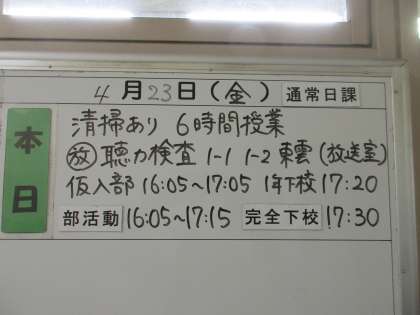 4月23日(金) 通常日課
本日
清掃あり 6時間授業
放 聴力検査 1-1 1-2 東雲 (放送室)
仮入部 16:05~17:05 1年下校 17:20
部活動 16:05~17:15 完全下校 17:30